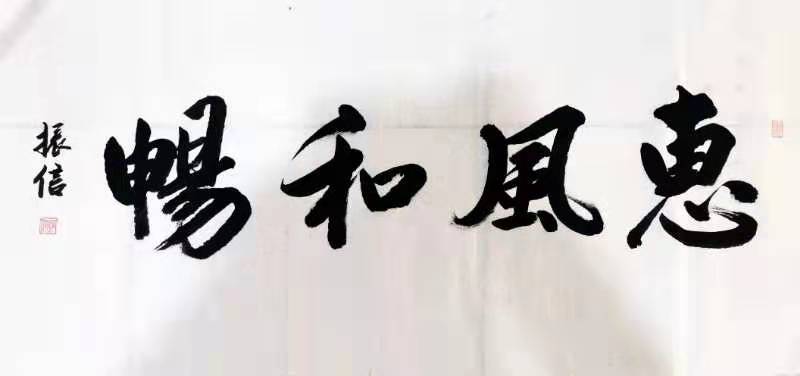 惠風和暢
振信